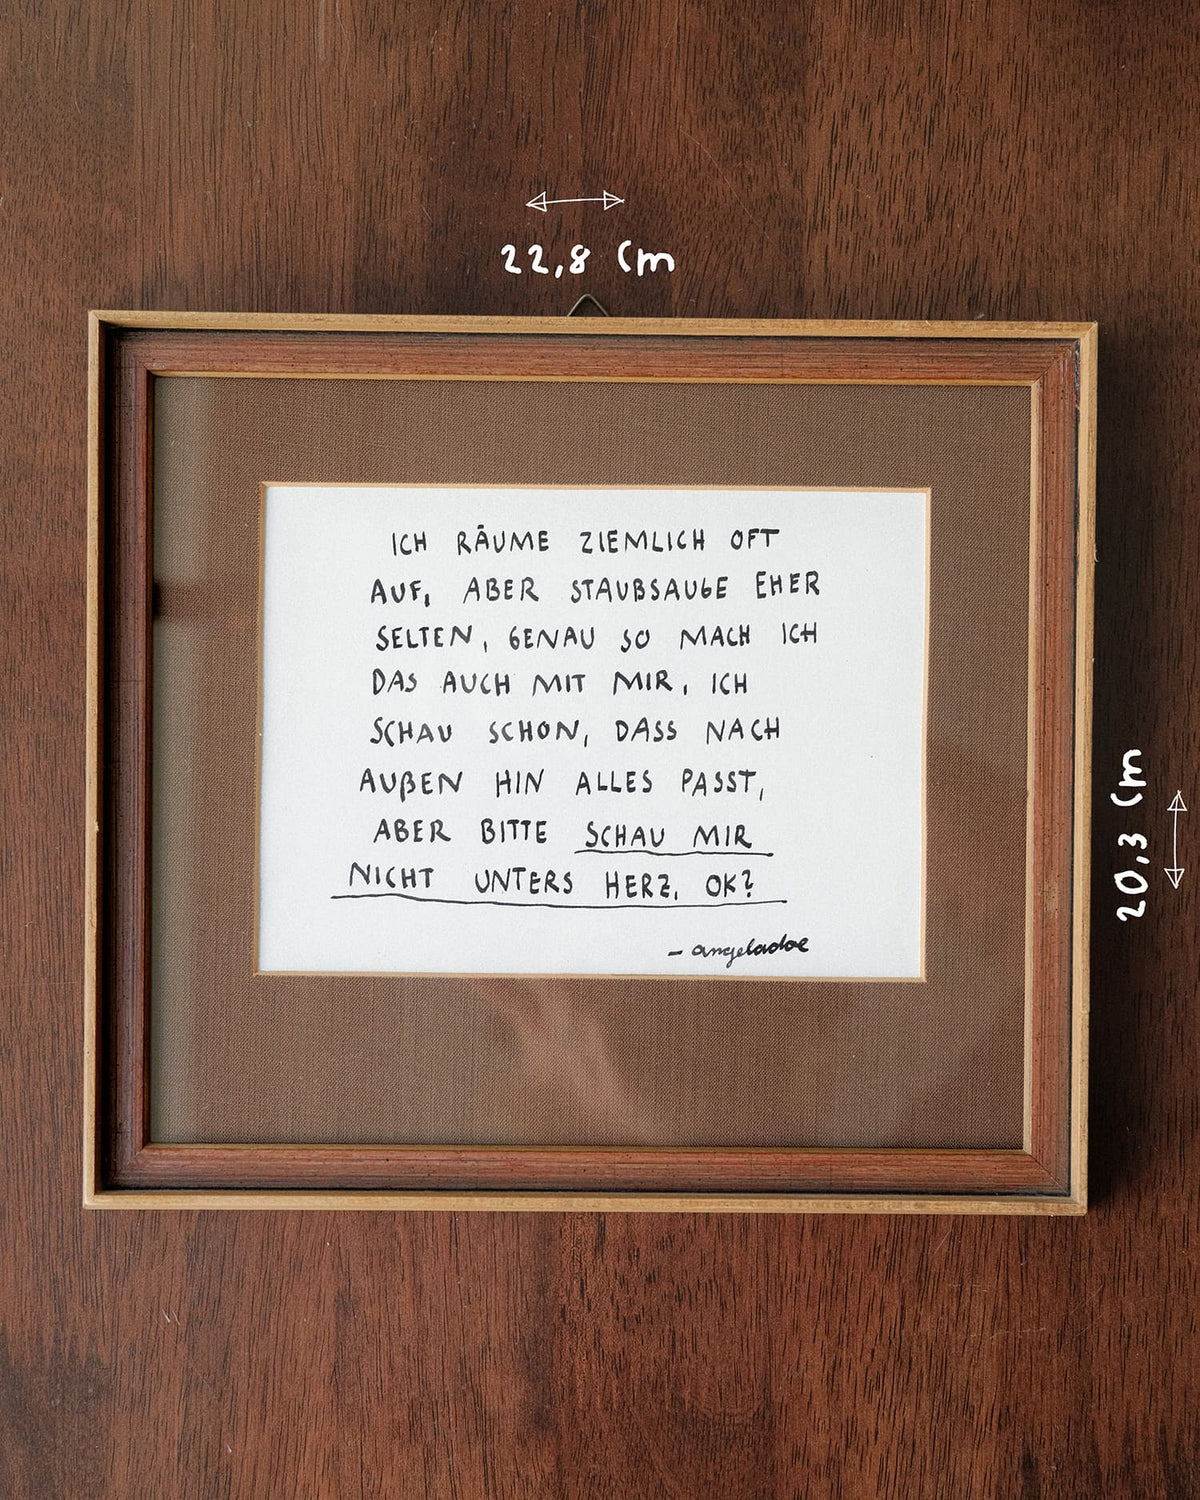 22,8 cm
ICH RÄUME ZIEMLICH OFT
AUF, ABER STAUBSAUGE EHER
SELTEN, GENAU SO MACH ICH
DAS AUCH MIT MIR, ICH
SCHAU SCHON, DASS NACH
AUßEN HIN ALLES PASST,
ABER BITTE SCHAU MIR
NICHT UNTERS HERZ, OK?
- angeladoe
20,3 cm